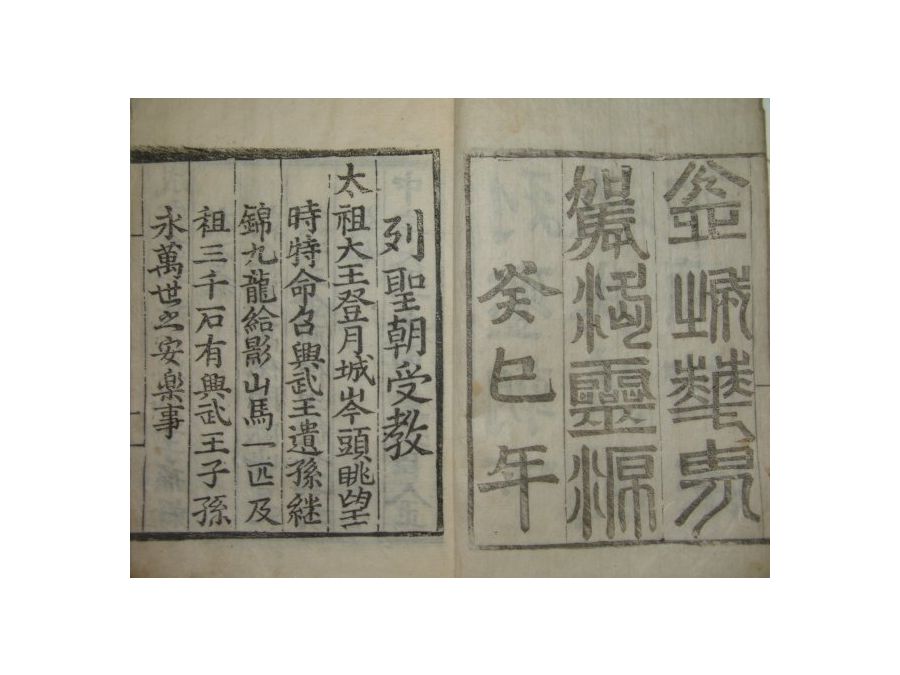 金城華冑
駕洛靈源
癸巳年
列聖朝受教
太祖大王登月城岑頭眺望
時特命召興武王遺孫継
錦九龍給影山馬一匹及
祖三千石有興武王子孫
永萬世之安楽事